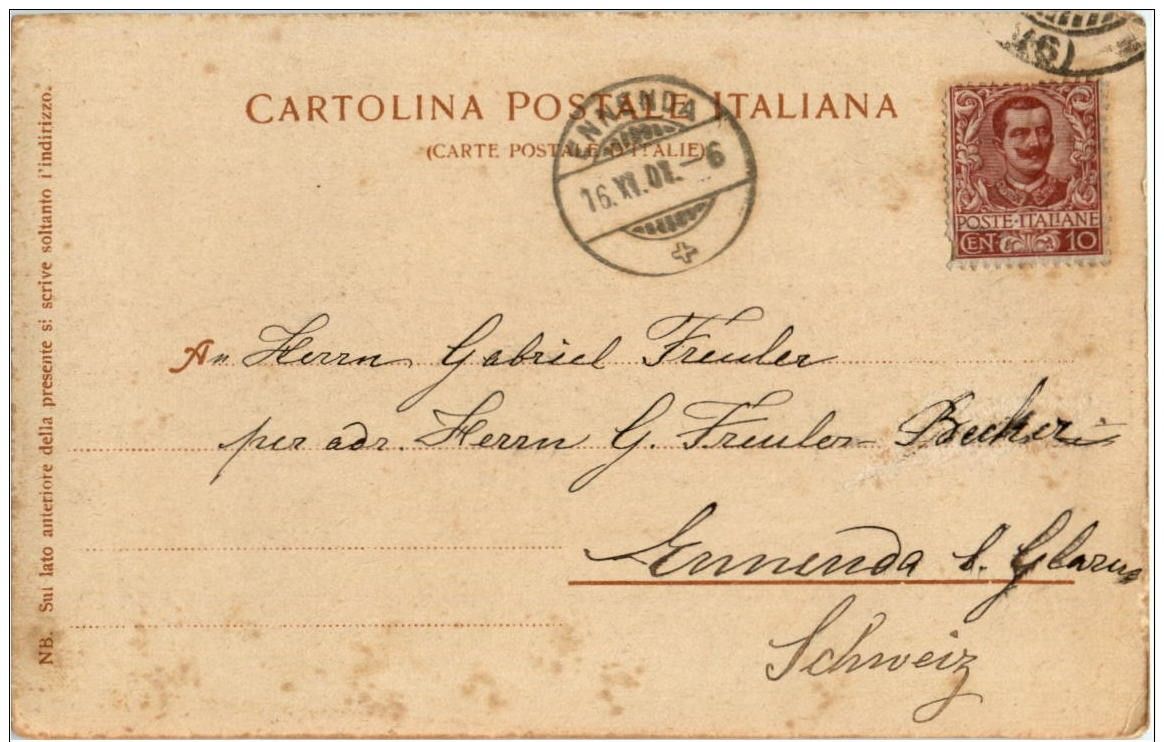 CARTOLINA POSTALE ITALIANA
(CARTE POSTALE D'ITALIE)
ENNENDA
16.XI.01.–6
POSTE·ITALIANE
CEN 10
An Herrn Gabriel Freuler
per adr. Herrn G. Freuler-Becker
Ennenda b. Glarus
Schweiz
NB. Sul lato anteriore della presente si scrive soltanto l'indirizzo.